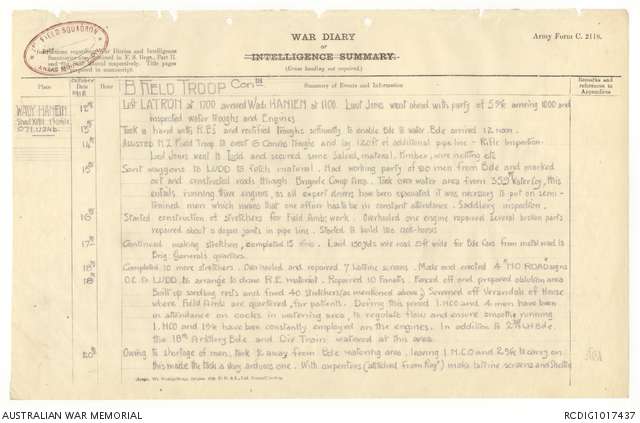 WAR DIARY
or
INTELLIGENCE SUMMARY.
(Erase heading not required.)
Army Form C. 2118.
FIELD SQUADRON
Instructions regarding War Diaries and Intelligence
Summaries are contained in F. S. Regs., Part II.
and the Staff Manual respectively. Title pages
will be prepared in manuscript.
Place
October
1918
B FIELD TROOP Conth
Summary of Events and Information
Remarks and
references to
Appendices
WADY HANEIN
Sheet XVIII
12th
Left LATRON at 1700 arrived Wadi HANIEN at 1100. Lieut Jones went ahead with party of 5 O/Rs arriving 1000 and
inspected water troughs and Engines
13th
Took a hand with R.E's and rectified troughs sufficiently to enable Bde to water. Bde arrived 12 noon.
14th
Assisted N.Z Field Troop to erect 6 Canvas troughs and lay 120ft of additional pipe line - Rifle Inspection
Lieut Jones went to Ludd and secured some Salved, material. Timber, wire netting etc
15th
Sent waggons to LUDD to fetch material. Had working party of 20 men from Bde and marked
out and constructed roads through Brigade Camp Area. Took over water area from Water Coy, this
entails running their engines, as all expert drivers have been evacuated it was necessary to put on semi-
trained men which means that one officer has to be in constant attendance. Saddlery inspection.
16th
Started construction of stretchers for Field Amb; work. Overhauled one engine repaired several broken parts
repaired about a dozen joints in pipe line. Started to build 100 cart-horses
17th
Continued making stretchers, completed 15 of them. Laid 150yds wire road 6ft wide for Bde Cars from metal road to
Brig. Generals quarters.
18th
Completed 10 more stretchers. Overhauled and repaired 7 latrine screens. Made and erected 4 "NO ROAD" signs
19th
O.C to LUDD to arrange to draw R.E material. Repaired 10 Fanatis. Fenced off and prepared ablution area
Built up sanding rests and fixed 40 stretchers (as mentioned above) & Screened off Verandah of House
where Field Amb are quartered, for patients. During this period 1 NCO and 4 men have been
in attendance on cocks in watering area, to regulate flow and ensure smooth running
1 NCO and have been constantly employed on the engines. In addition to 2nd LH Bde,
the 18th Artillery Bde and Div Train watered at this area.
20th
Owing to shortage of men, took away from Bde watering area, leaving 1 N.C.O and 2 O/Rs to carry on
this made the task a very arduous one. With carpenters (attached from Reg) make latrine screens and shelter
AUSTRALIAN WAR MEMORIAL
RCDIG1017437